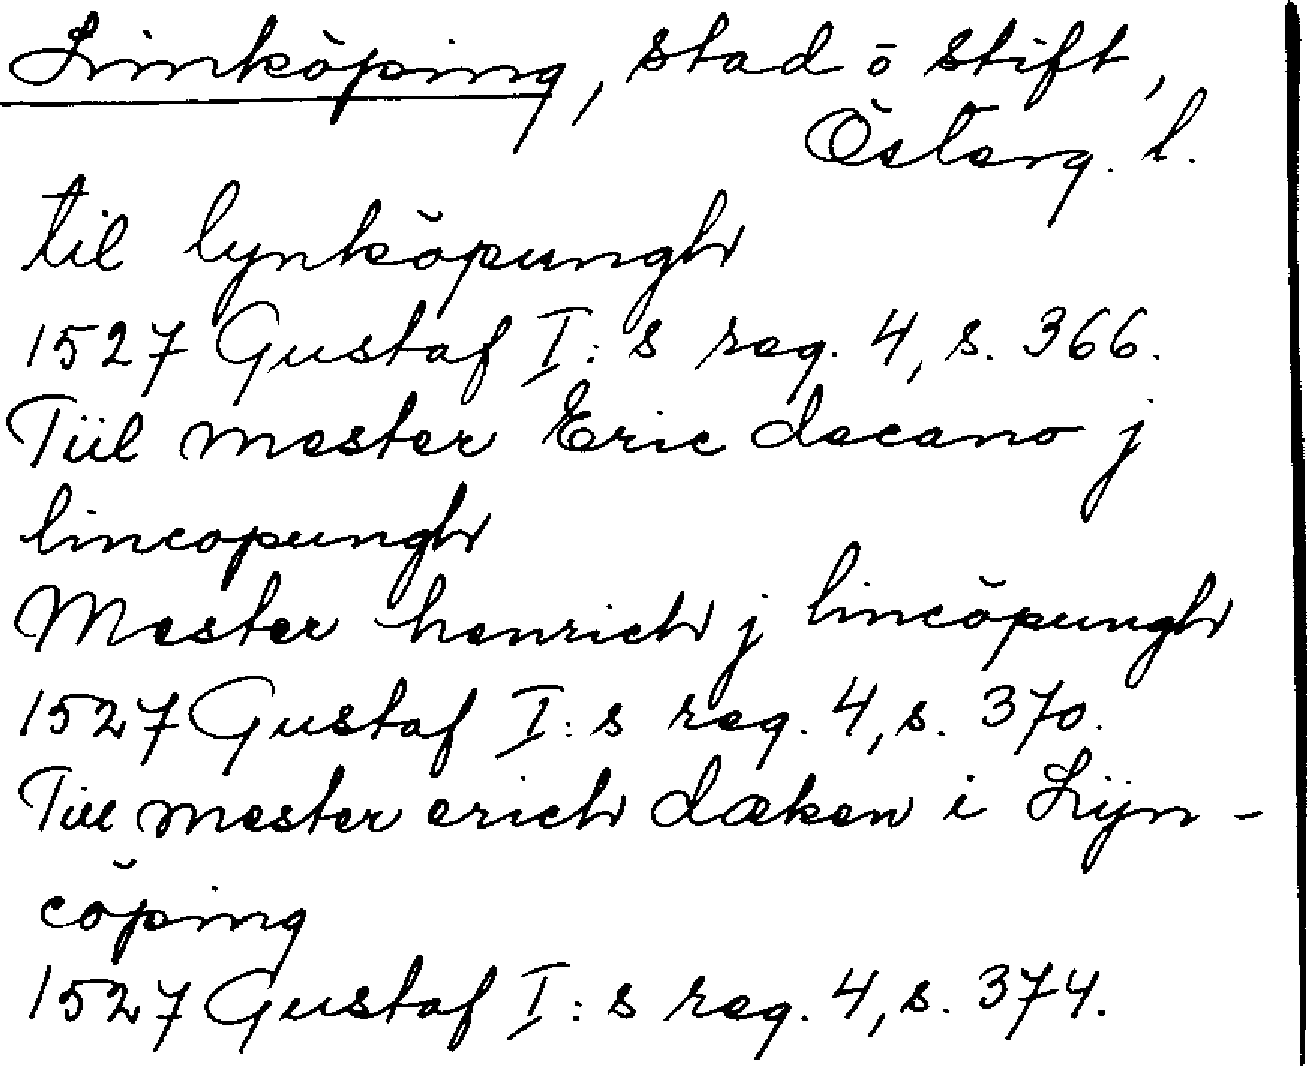 Linköping, stad o stift,
Österg. l.
til lynköpungh
1527 Gustaf I:s reg. 4, s. 366.
Tiil mester Eric decano j
lincopungh
Mester henrich j lincöpungh
1527 Gustaf I:s reg. 4, s. 370.
Till mester erich dæken i Lijn-
cöping
1527 Gustaf I:s reg. 4, s. 374.